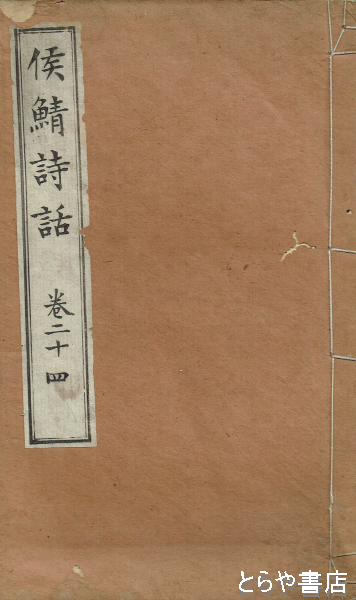 侯鯖詩話 卷二十四
とらや書店